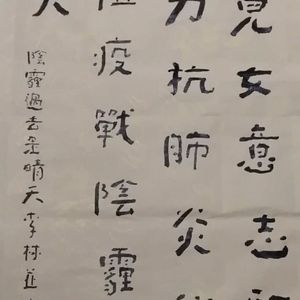 兒女意志
力抗肺炎
疫戰陰霾
陰霾過去是晴天李林